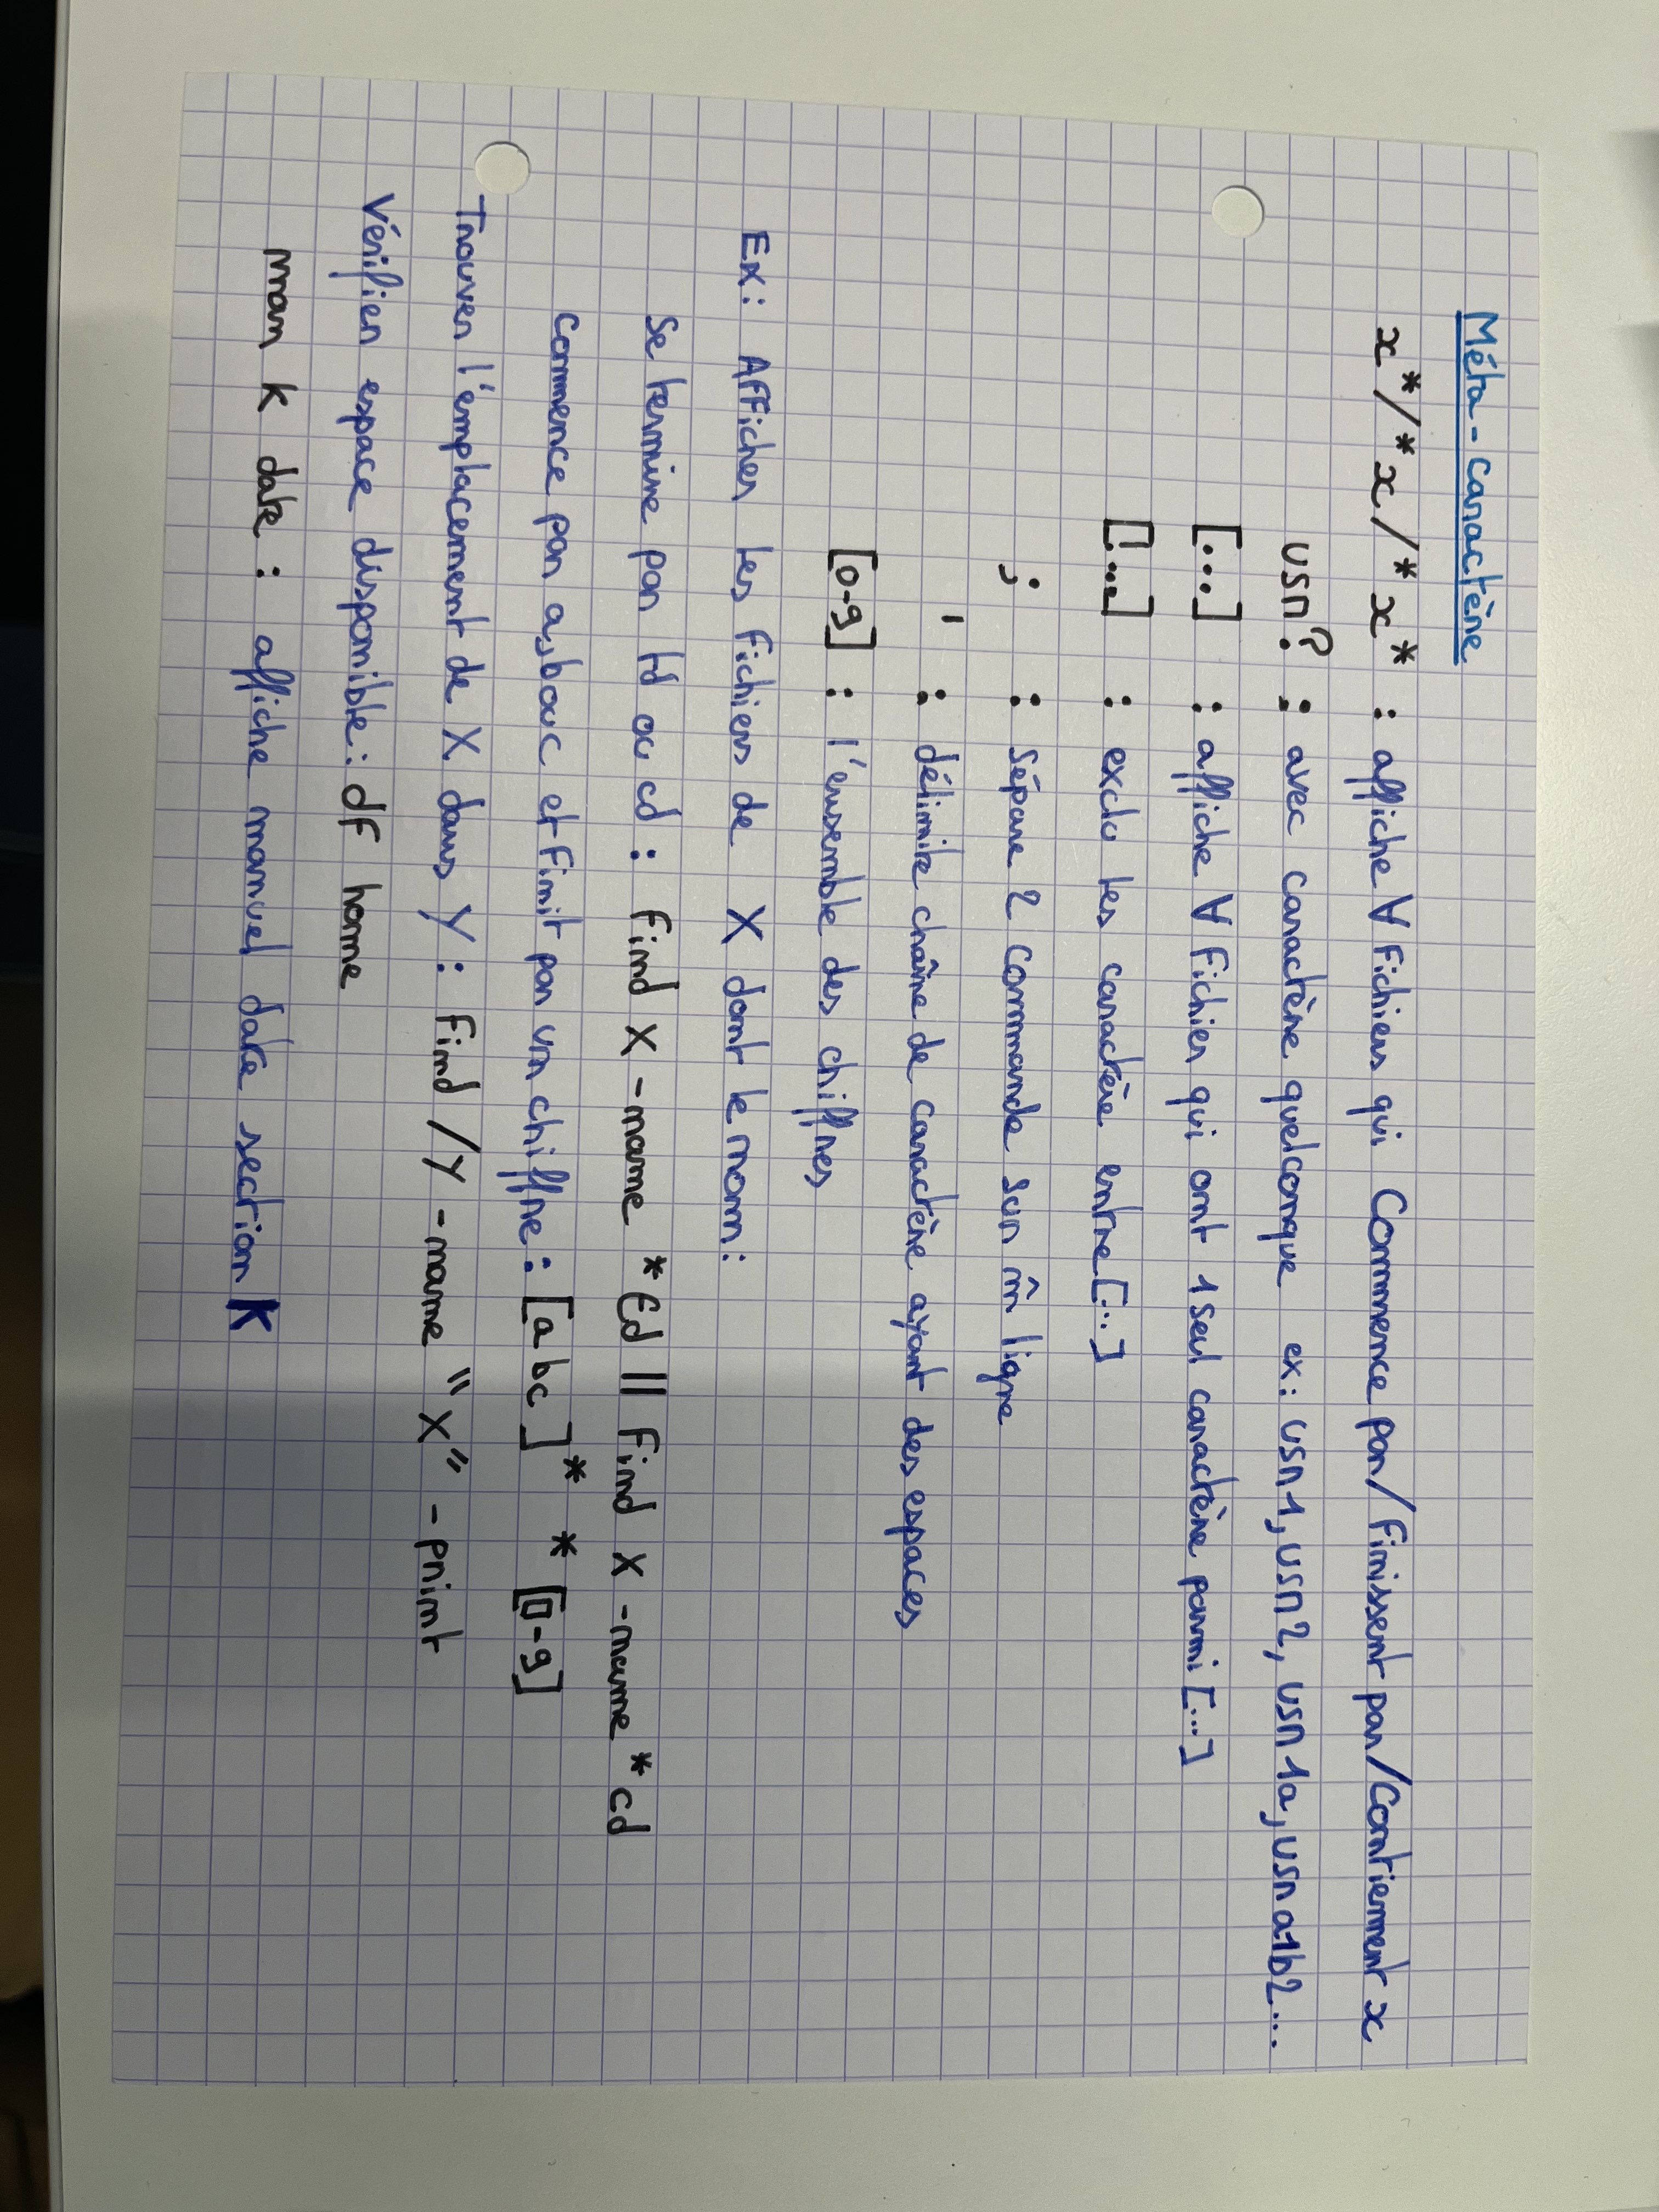 Méta-caractère
x*/*x/*x* : affiche ∀ fichiers qui commence par/finissent par/contiennent x
usr? : avec caractère quelconque ex: usr1, usr2, usr1a, usra1b2...
[...] : affiche ∀ fichier qui ont 1 seul caractère parmi [...]
[!...] : exclu les caractère entre [...]
; : sépare 2 commande sur m̂ ligne
' : délimite chaîne de caractère ayant des espaces
[0-9] : l'ensemble des chiffres
Ex: Afficher les fichiers de X dont le nom:
se termine par td ou cd : find X -name *td || find X -name *cd
commence par a,b ou c et finit par un chiffre : [abc]* *[0-9]
Trouver l'emplacement de X dans Y : find /Y -name "X" -print
Vérifier espace disponible : df home
man K date : affiche manuel date section K